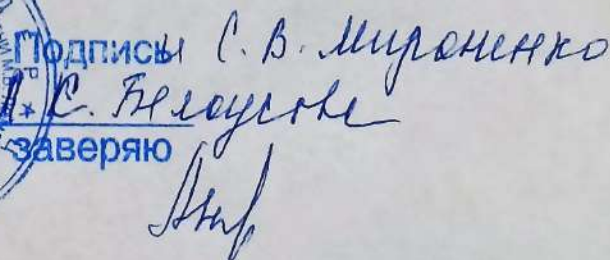 Подписи С. В. Мироненко
С. Белоусова
заверяю